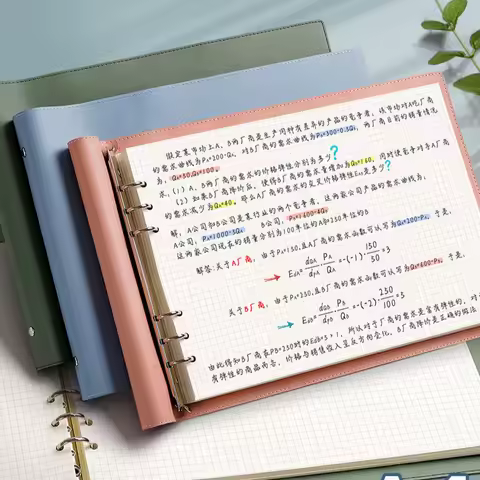 假定某市场上A、B两厂商是生产同种有差异的产品的竞争者，该市场对A厂商
的需求曲线为PA=200-QA，对B厂商的需求曲线为PB=300-0.5QB，两厂商目前的销售情况
为，QA=50,QB=100。
求，(1) A、B两厂商的需求的价格弹性分别为多少？
(2) 如果B厂商降价后，使得B厂商的需求量增加为QB=160，同时使竞争对手A厂商
的需求减少为QA=40。那么A厂商的需求的交叉价格弹性EAB是多少？
解，A公司和B公司是某行业的两个竞争者，这两家公司产品的需求曲线为，
A公司，PA=1000-3QA B公司，PB=1600-4QB
这两家公司现在的销售量分别为100单位的A和250单位的B
解答：关于A厂商，由于PA=150，且A厂商的需求函数可以写为QA=200-PA，于是，
EdA=-dQA/dPA·PA/QA=-(-1)·150/50=3
关于B厂商，由于PB=250，且B厂商的需求函数可以写为QB=600-PB，于是，
EdB=-dQB/dPB·PB/QB=-(-2)·250/100=5
由此得知B厂商在PB=250时的EdB=5>1，所以对于厂商的需求是富有弹性的，对
有弹性的商品而言，价格与销售收入呈反方向变化，B厂商降价是正确的做法